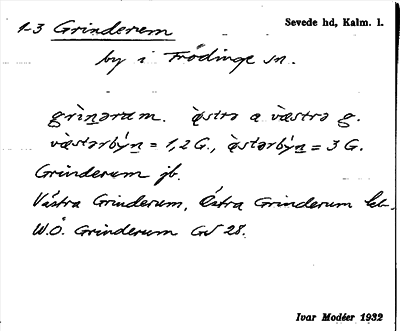 1-3 Grinderum
Sevede hd, Kalm. l.
by i Frödinge sn.
grìṉərum. ə̀strə a væ̀strə g.
væ̀stərbýṉ = 1,2 G., ə̀stərbýṉ = 3 G.
Grinderum jb.
Västra Grinderum, Östra Grinderum
W.Ö. Grinderum GV 28.
Ivar Modéer 1932